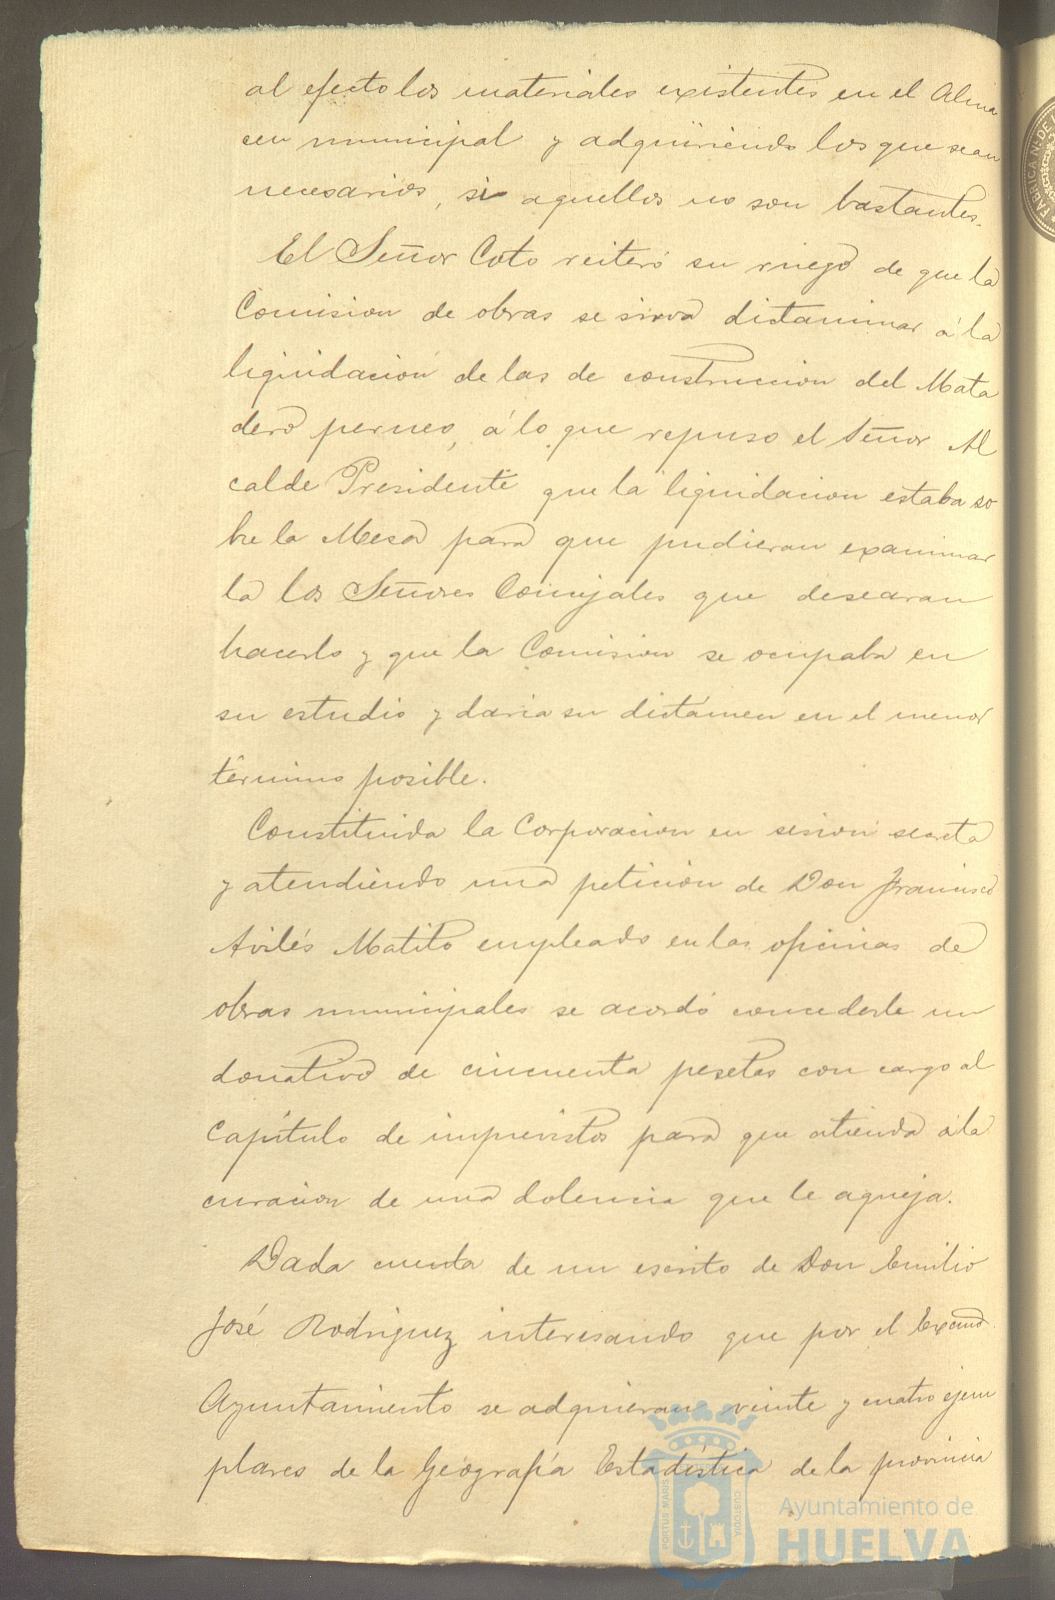 al efecto los materiales existentes en el Alma
cen municipal y adquiriendo los que sean
necesarios, si aquellos no son bastantes.
El Señor Coto reiteró su ruego de que la
Comision de obras se sirva dictaminar á la
liquidación de las de construccion del Mata
dero perneo, á lo que repuso el Señor Al
calde Presidente que la liquidacion estaba so
bre la Mesa para que pudieran examinar
la los Señores Concejales que desearan
hacerlo y que la Comision se ocupaba en
su estudio y daria su dictámen en el menor
término posible.
Constituida la Corporacion en sesion secreta
y atendiendo una peticion de Don Francisco
Avilés Matito empleado en las oficinas de
obras municipales se acordó concederle un
donativo de cincuenta pesetas con cargo al
Capítulo de imprevistos para que atienda á la
curacion de una dolencia que le aqueja.
Dada cuenta de un escrito de Don Emilio
José Rodriguez interesando que por el Excmo.
Ayuntamiento se adquieran veinte y cuatro ejem
plares de la Geografía Estadística de la provincia
PORTUS MARIS CUSTODIA
Ayuntamiento de
HUELVA
FABRICA Nl. DE